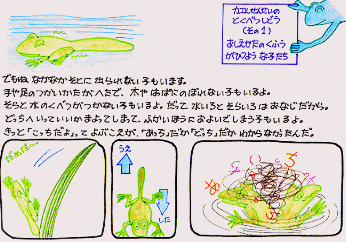 カエルせんせいの
とくべつじどう
(その1)
おしえかたのくふう
がひつような子たち
でもね、なかなかそとに 出られない子もいます。
手や足のつかいかたがへたで、木や はっぱにのぼれない子もいるよ。
そらと水のくべつがつかない子もいるよ。だって水いろと そらいろは おなじだから。
どっちへいっていいかまよってしまって、ふかいほうにおよいでしまう子もいるよ。
きっと「こっちだよ。」って よぶこえが、「あっち」だか「どっち」だか わからなかったんだ。
だめだ〜
うえ
した